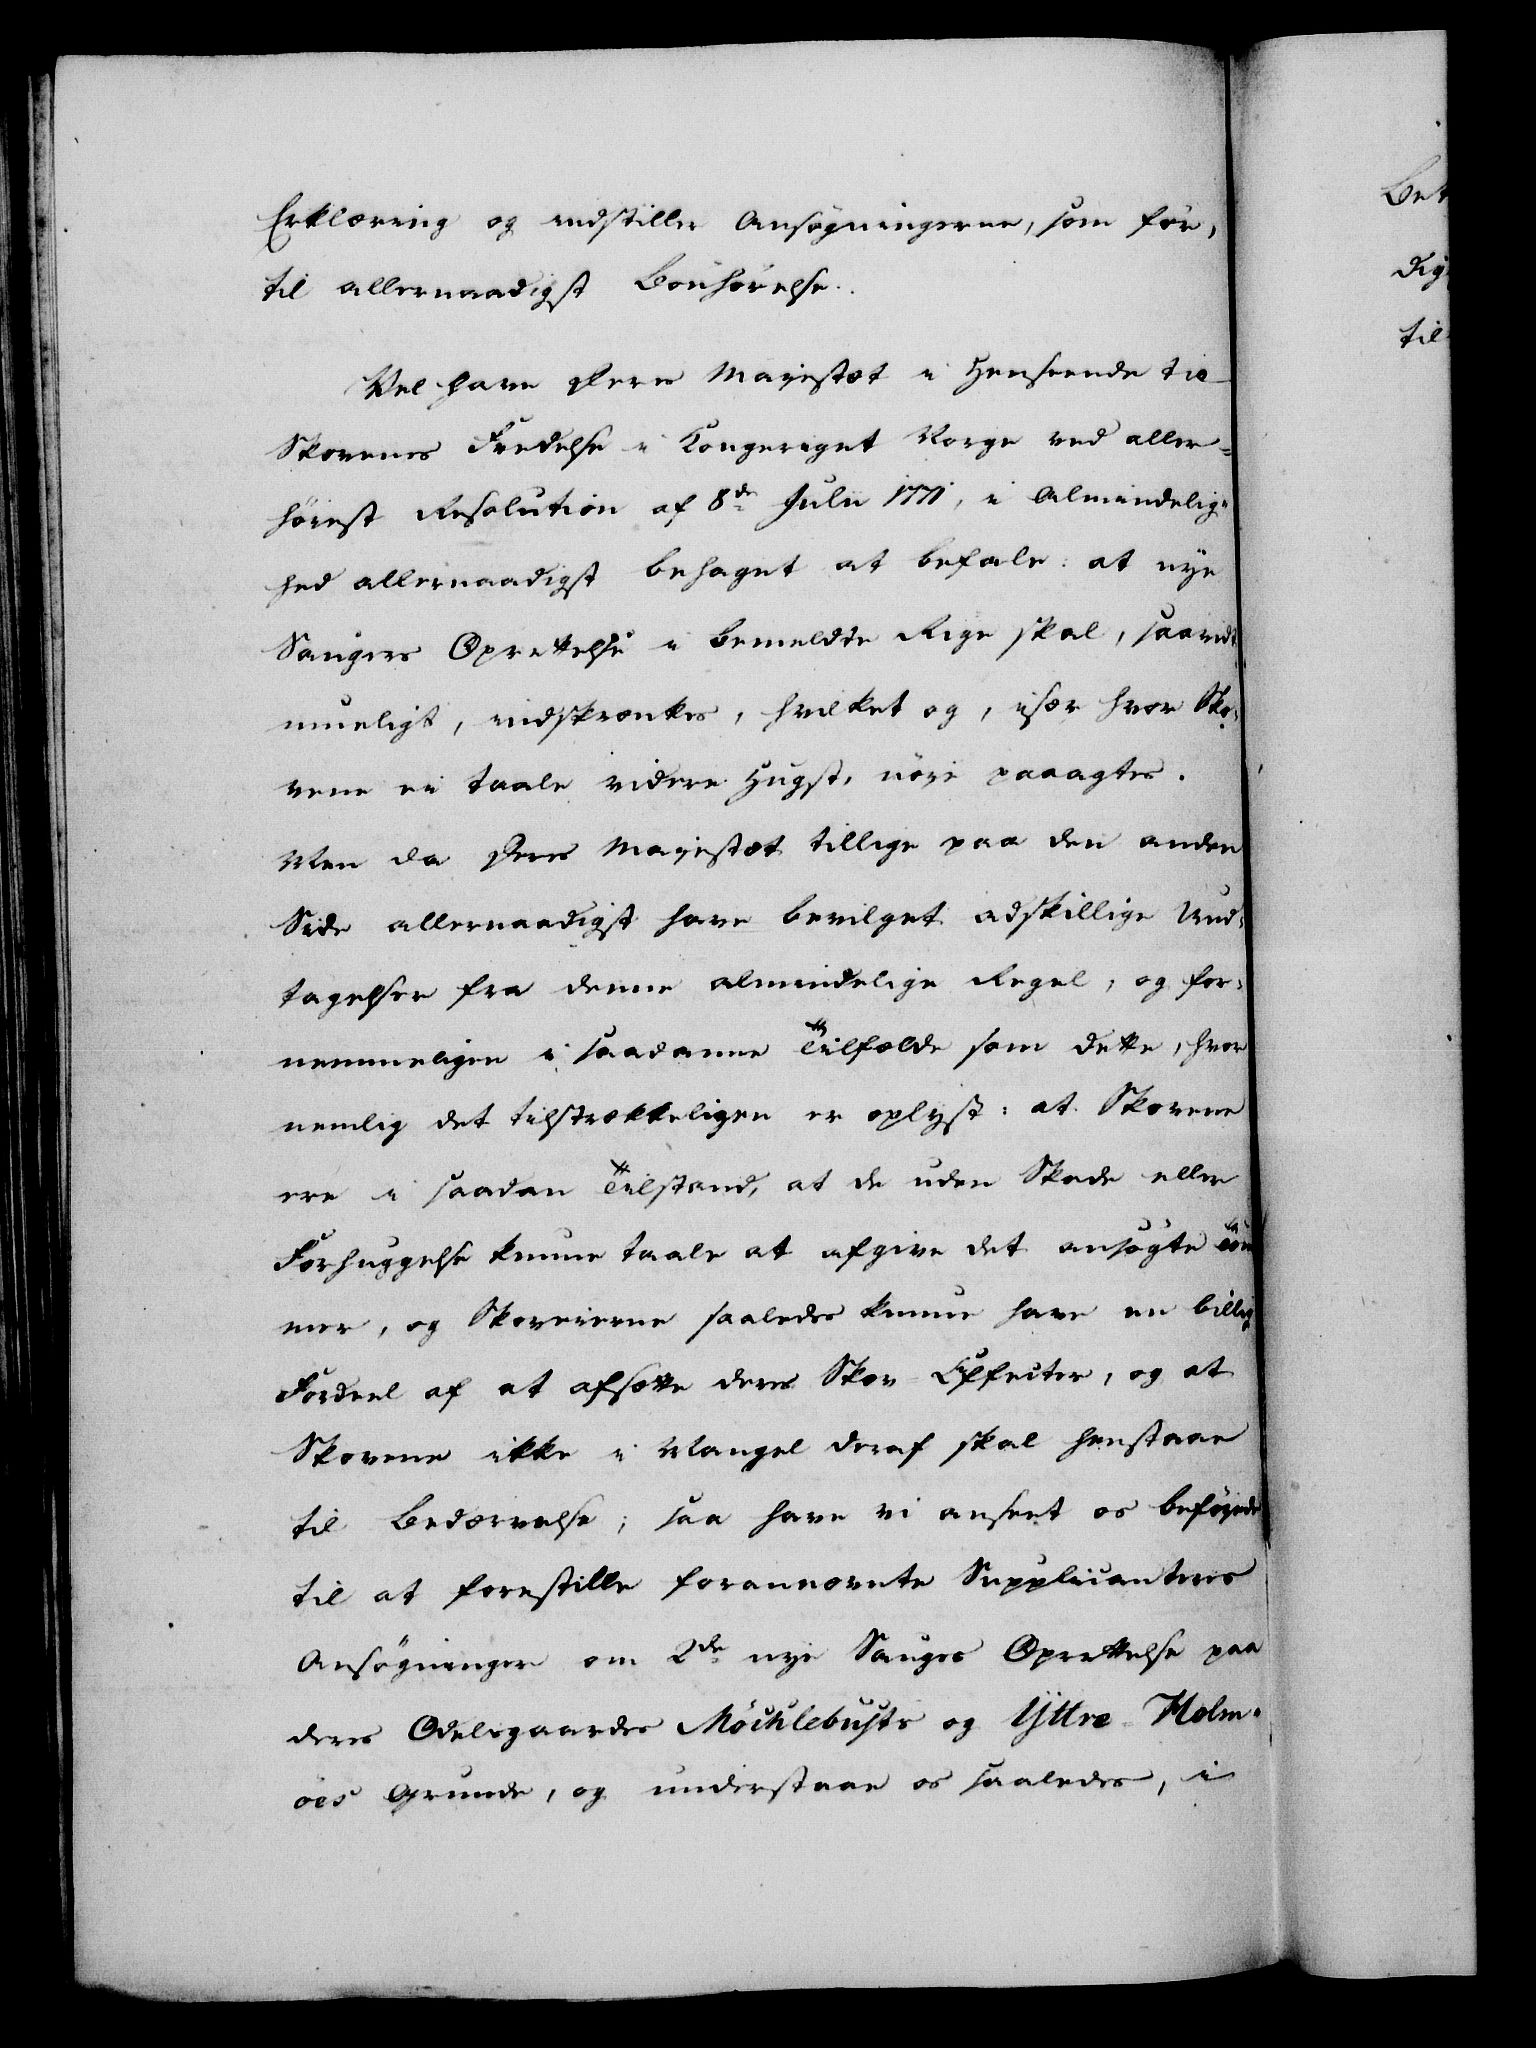 Erklæring og indstiller Ansøgningerne, som før,
til allernaadigst Bønhørelse.
Vel have Deres Mayestæt i Henseende til
Skovenes Fredelse i Kongeriget Norge ved aller=
høiest Resolution af 8de Julii 1771, i Almindelig=
hed allernaadigst behaget at befale: at nye
Saugers Oprettelse i bemeldte Rige skal, saavidt
mueligt, indskrænkes, hvilket og, især hvor Sko=
vene ei taale videre Hugst, nøie paaagtes.
Men da Deres Mayestæt tillige paa den anden
Side allernaadigst have bevilget adskillige Und=
tagelser fra denne almindelige Regel, og for=
nemmeligen i saadanne Tilfælde som dette, hvor
nemlig det tilstrækkeligen er oplyst: at Skovene
ere i saadan Tilstand, at de uden Skade eller
Forhuggelse kunne taale at afgive det ansøgte Tøm
mer, og Skoveierne saaledes kunne have en billig
Fordeel af at afsætte deres Skov-Effecter, og at
Skovene ikke i Mangel deraf skal henstaae
til Bedærvelse; saa have vi anseet os beføyede
til at forestille forannævnte Supplicanters
Ansøgninger om 2de nye Sauges Oprettelse paa
deres Odelsgaardes Möchlebusts og Yttre-Holm=
öes Grunde, og understaae os saaledes, i
Bet
dig
til